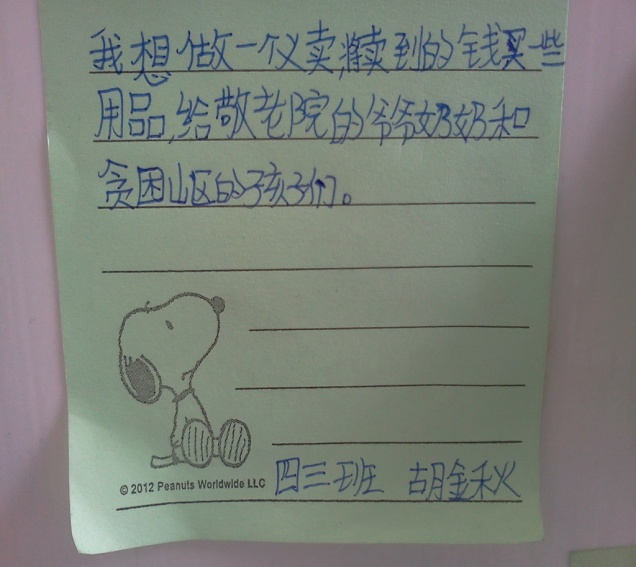 我想做一个义卖,将卖到的钱买一些
用品,给敬老院的爷爷奶奶和
贪困山区的孩子们。
© 2012 Peanuts Worldwide LLC
四三班 胡金秋